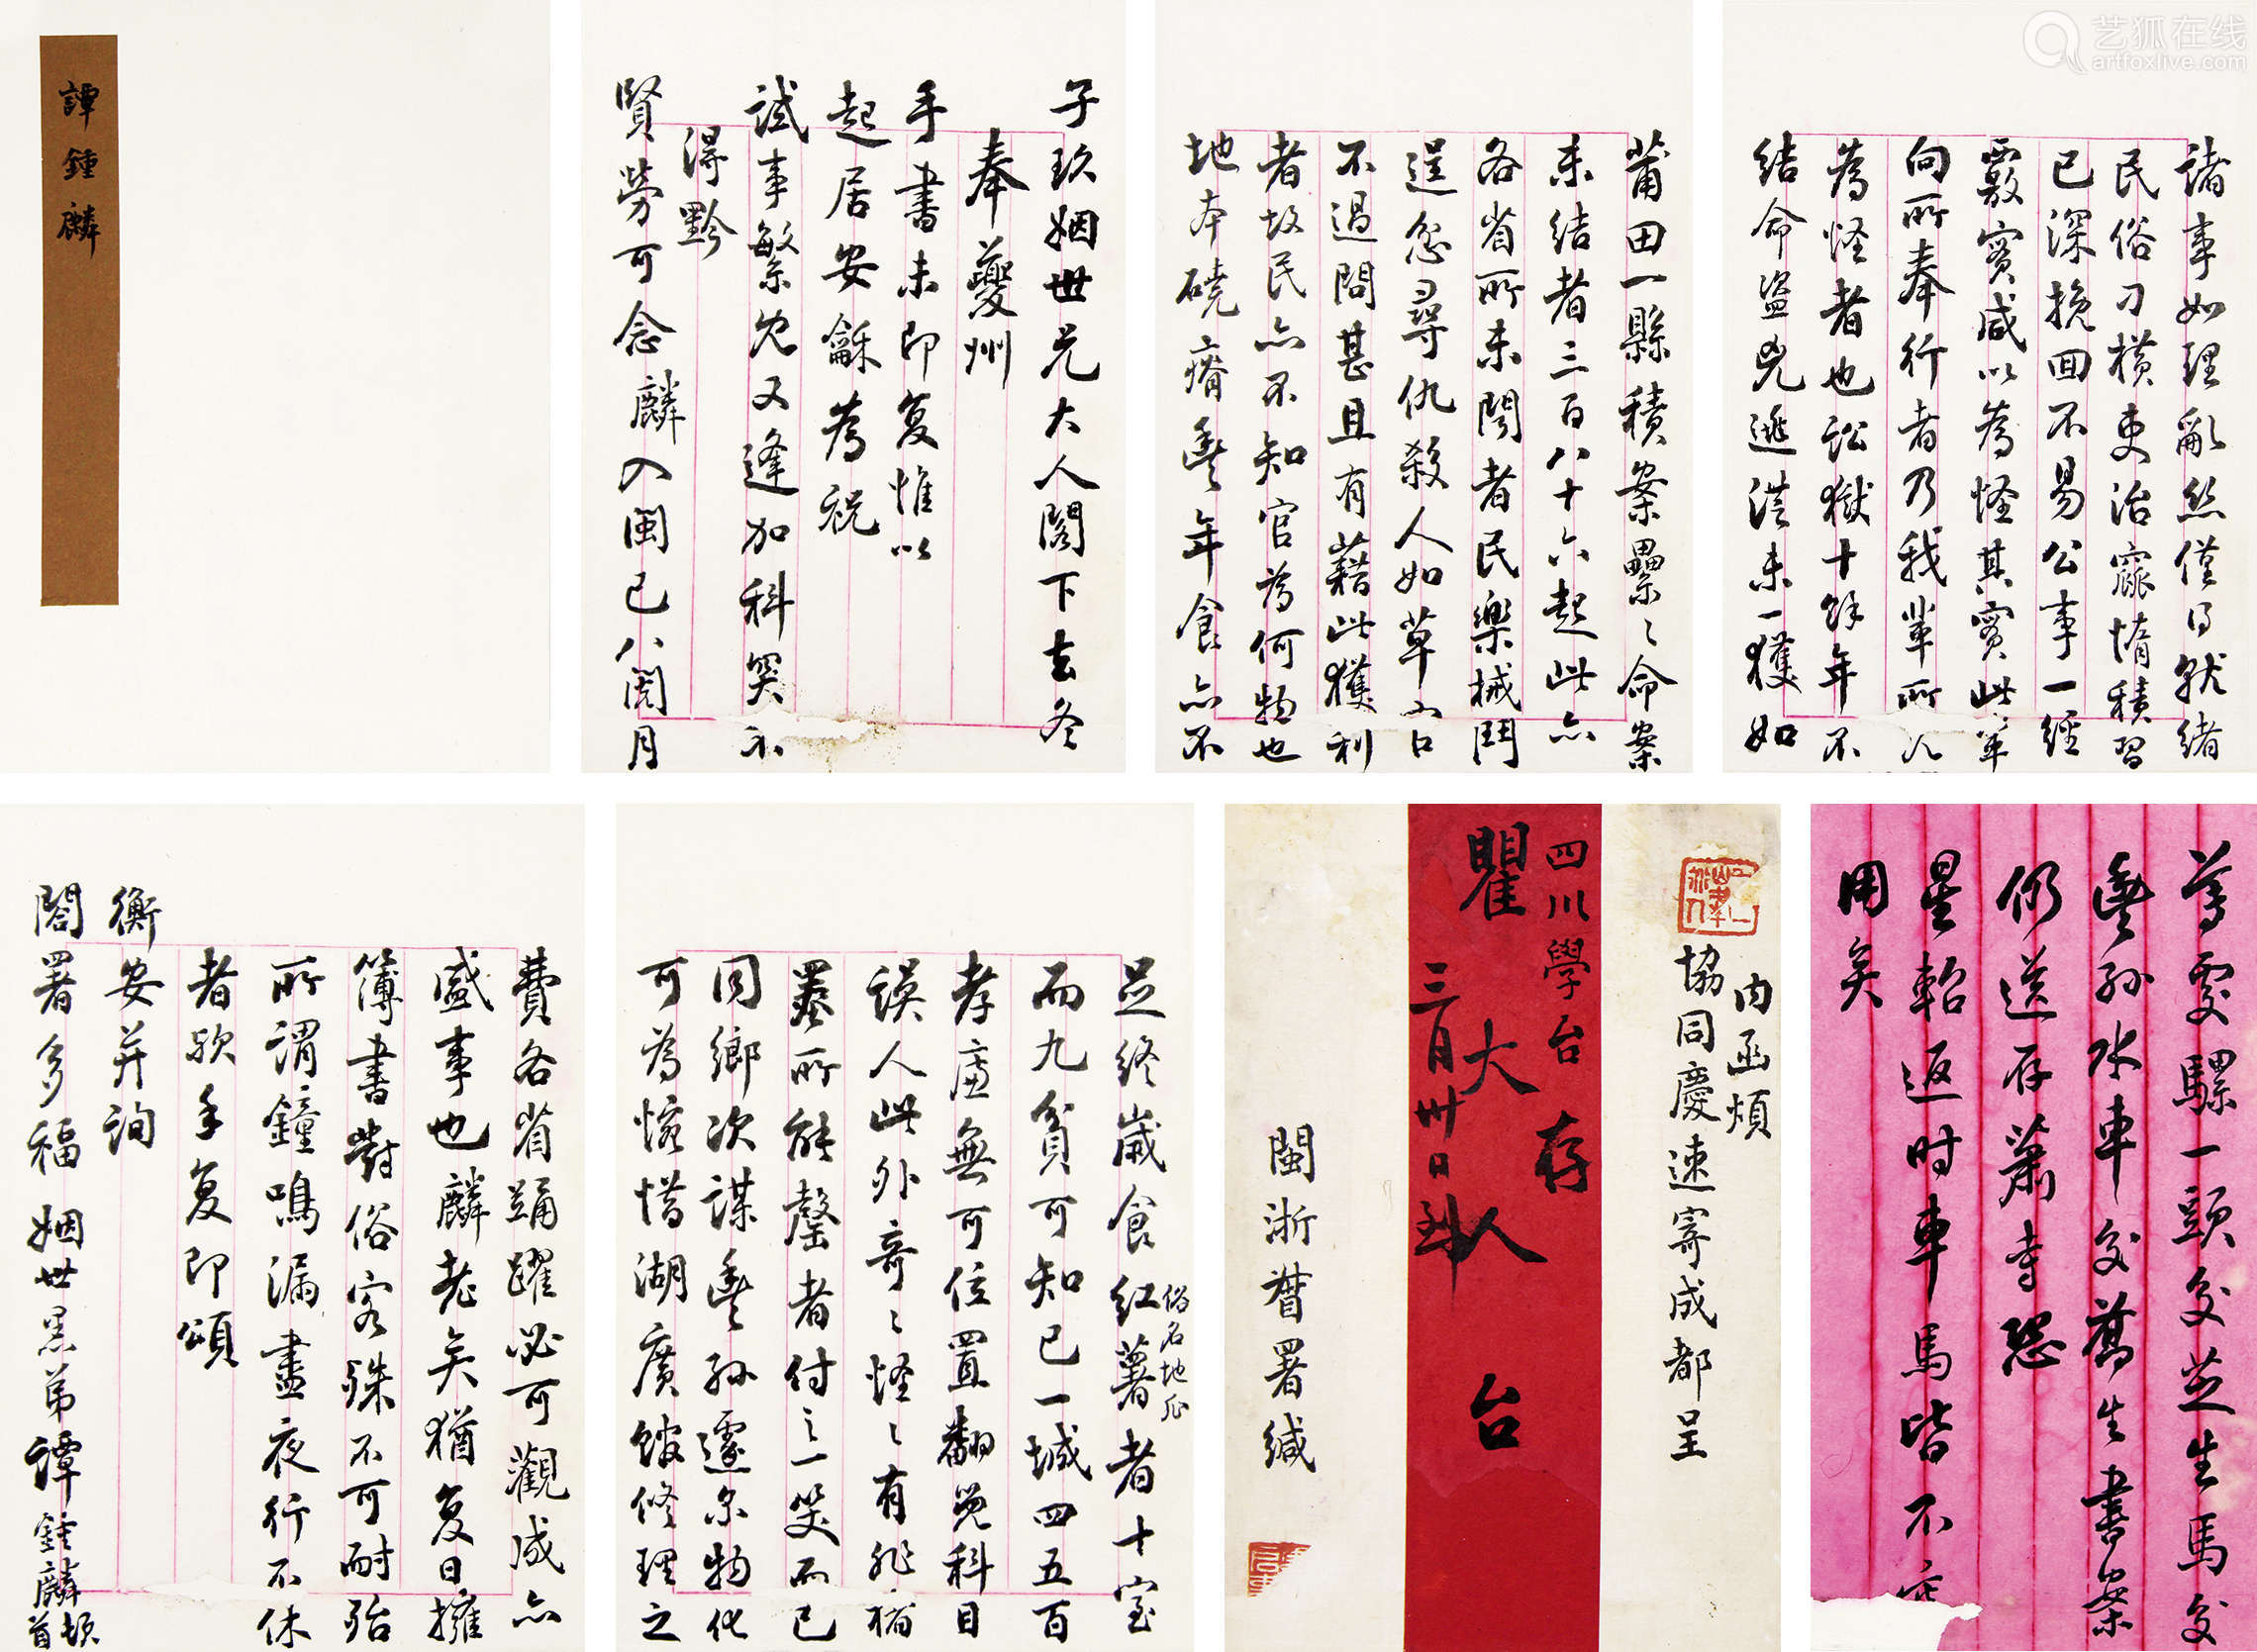 艺狐在线
artfoxlive.com
譚鍾麟
子玖姻世兄大人閣下去冬
奉夔州
手書未即复惟以
起居安龢為祝
試事繁冗又逢加科
得黔
賢勞可念麟入閩已八閱月
諸事如理亂絲僅得就緒
民俗刁橫吏治窳惰積習
已深挽回不易公事一經
覈實咸以為怪其實此等
向所奉行者乃我輩所
為怪者也訟獄十餘年不
結命盜兇逃從未一獲如
莆田一縣積案纍々命案
未結者三百八十六起此亦
各省所未聞者民樂械鬥
逞忿尋仇殺人如草官
不過問甚且有藉此獲利
者故民亦不知官為何物也
地本磽瘠豐年食亦不
足終歲食紅薯者十室
俗名地瓜
而九貧可知已一城四五百
孝廉無可位置翻覺科目
誤人此外奇々怪々有非楮
墨所能罄者付之一笑而已
同鄉次謀豐孫遽尔物化
可為惋惜湖廣館修理之
費各省踴躍必可觀成亦
盛事也麟老矣猶复日擁
簿書對俗客殊不可耐殆
所謂鐘鳴漏盡夜行不休
者歟手复即頌
衡安并詢
閤署多福 姻世愚弟譚鍾麟頓首
內函煩
協同慶速寄成都呈
四川學台
瞿大人 台
存
三月卅日到
閩浙督署緘
尊處騾一頭交芝生馬交
豐孫水車交舊生書案
仍送存蕭寺恐
星軺返时車馬皆不
用矣